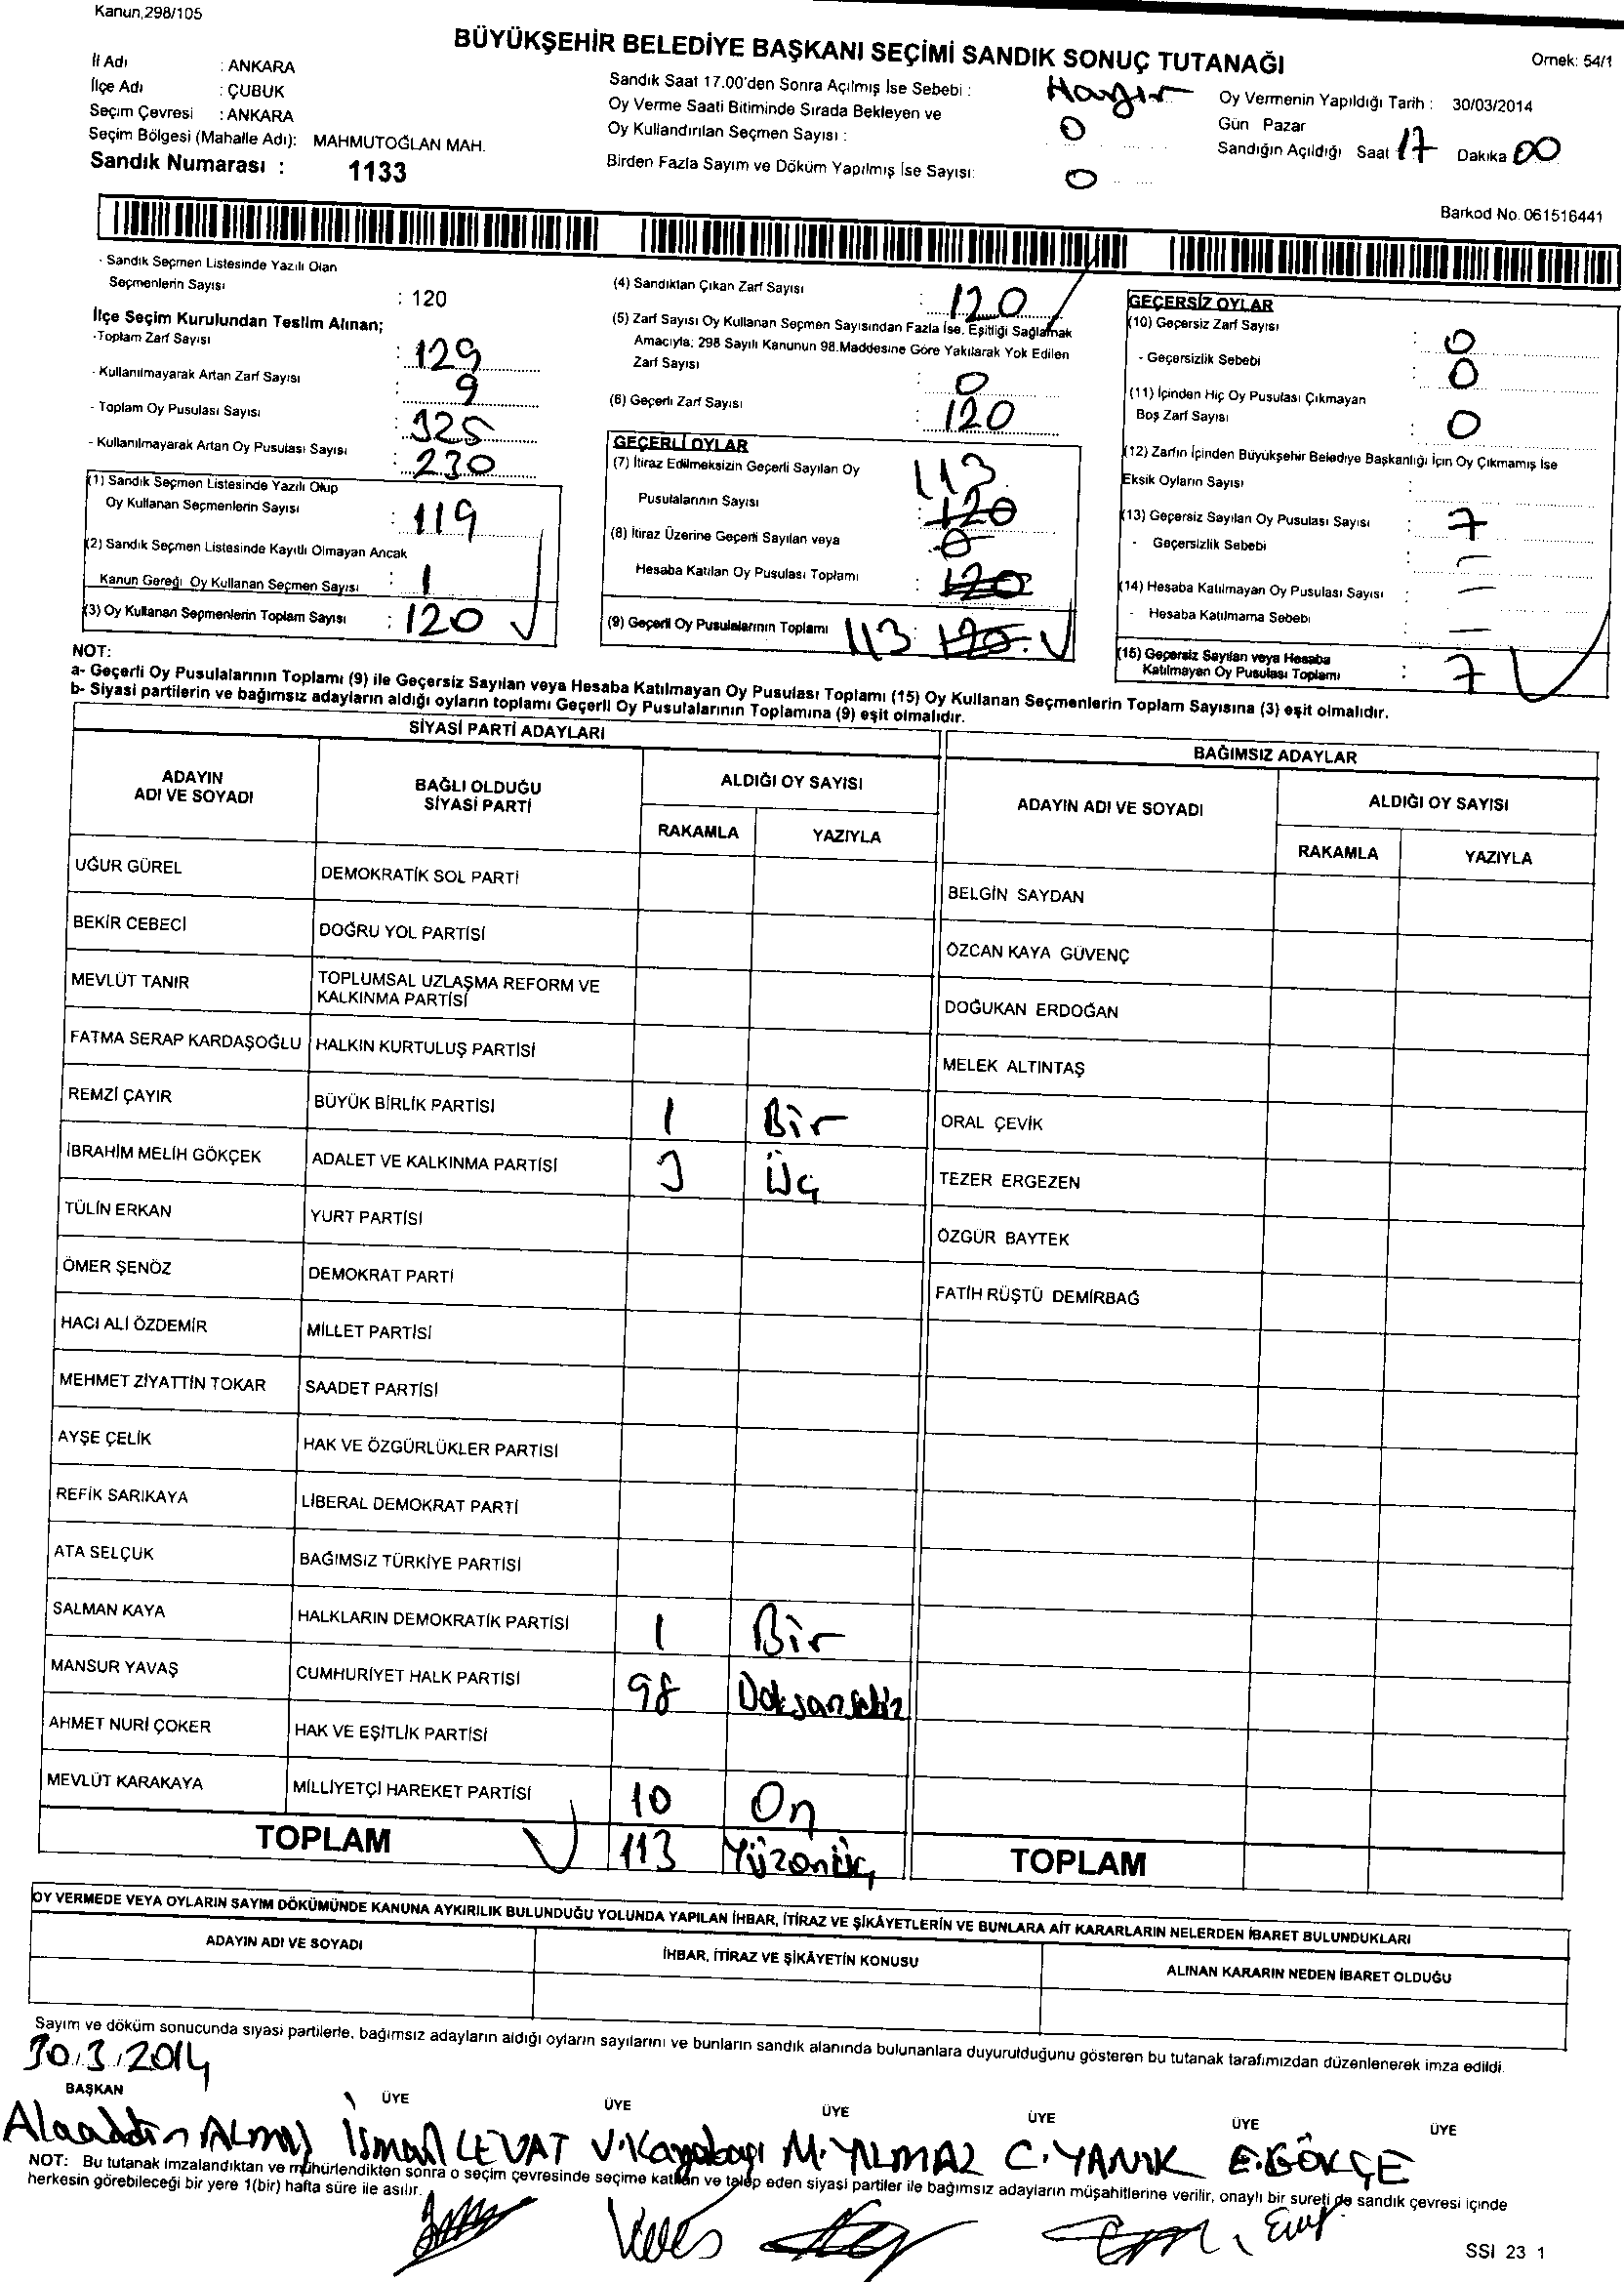 Kanun,298/105
BÜYÜKŞEHİR BELEDİYE BAŞKANI SEÇİMİ SANDIK SONUÇ TUTANAĞI
Örnek: 54/1
İl Adı : ANKARA
İlçe Adı : ÇUBUK
Seçim Çevresi : ANKARA
Seçim Bölgesi (Mahalle Adı): MAHMUTOĞLAN MAH.
Sandık Numarası : 1133
Sandık Saat 17.00'den Sonra Açılmış İse Sebebi : Hayır
Oy Verme Saati Bitiminde Sırada Bekleyen ve
Oy Kullandırılan Seçmen Sayısı : 0
Birden Fazla Sayım ve Döküm Yapılmış İse Sayısı: 0
Oy Vermenin Yapıldığı Tarih : 30/03/2014
Gün Pazar
Sandığın Açıldığı Saat 17 Dakika 00
Barkod No. 061516441
- Sandık Seçmen Listesinde Yazılı Olan
Seçmenlerin Sayısı : 120
İlçe Seçim Kurulundan Teslim Alınan;
-Toplam Zarf Sayısı : 129
- Kullanılmayarak Artan Zarf Sayısı : 9
- Toplam Oy Pusulası Sayısı : 325
- Kullanılmayarak Artan Oy Pusulası Sayısı : 230
(1) Sandık Seçmen Listesinde Yazılı Olup
Oy Kullanan Seçmenlerin Sayısı : 119
(2) Sandık Seçmen Listesinde Kayıtlı Olmayan Ancak
Kanun Gereği Oy Kullanan Seçmen Sayısı : 1
(3) Oy Kullanan Seçmenlerin Toplam Sayısı : 120
(4) Sandıktan Çıkan Zarf Sayısı : 120
(5) Zarf Sayısı Oy Kullanan Seçmen Sayısından Fazla İse, Eşitliği Sağlamak
Amacıyla; 298 Sayılı Kanunun 98.Maddesine Göre Yakılarak Yok Edilen
Zarf Sayısı : 0
(6) Geçerli Zarf Sayısı : 120
GEÇERLİ OYLAR
(7) İtiraz Edilmeksizin Geçerli Sayılan Oy 113
Pusulalarının Sayısı : 120
(8) İtiraz Üzerine Geçerli Sayılan veya 0
Hesaba Katılan Oy Pusulası Toplamı : 120
(9) Geçerli Oy Pusulalarının Toplamı 113 : 120
GEÇERSİZ OYLAR
(10) Geçersiz Zarf Sayısı : 0
- Geçersizlik Sebebi : 0
(11) İçinden Hiç Oy Pusulası Çıkmayan
Boş Zarf Sayısı : 0
(12) Zarfın İçinden Büyükşehir Belediye Başkanlığı İçin Oy Çıkmamış İse
Eksik Oyların Sayısı :
(13) Geçersiz Sayılan Oy Pusulası Sayısı : 7
- Geçersizlik Sebebi : –
(14) Hesaba Katılmayan Oy Pusulası Sayısı : –
- Hesaba Katılmama Sebebi –
(15) Geçersiz Sayılan veya Hesaba
Katılmayan Oy Pusulası Toplamı : 7
NOT:
a- Geçerli Oy Pusulalarının Toplamı (9) ile Geçersiz Sayılan veya Hesaba Katılmayan Oy Pusulası Toplamı (15) Oy Kullanan Seçmenlerin Toplam Sayısına (3) eşit olmalıdır.
b- Siyasi partilerin ve bağımsız adayların aldığı oyların toplamı Geçerli Oy Pusulalarının Toplamına (9) eşit olmalıdır.
SİYASİ PARTİ ADAYLARI
ADAYIN ADI VE SOYADI
BAĞLI OLDUĞU SİYASİ PARTİ
ALDIĞI OY SAYISI
RAKAMLA YAZIYLA
UĞUR GÜREL DEMOKRATİK SOL PARTİ
BEKİR CEBECİ DOĞRU YOL PARTİSİ
MEVLÜT TANIR TOPLUMSAL UZLAŞMA REFORM VE
KALKINMA PARTİSİ
FATMA SERAP KARDAŞOĞLU HALKIN KURTULUŞ PARTİSİ
REMZİ ÇAYIR BÜYÜK BİRLİK PARTİSİ 1 Bir
İBRAHİM MELİH GÖKÇEK ADALET VE KALKINMA PARTİSİ 3 Üç
TÜLİN ERKAN YURT PARTİSİ
ÖMER ŞENÖZ DEMOKRAT PARTİ
HACI ALİ ÖZDEMİR MİLLET PARTİSİ
MEHMET ZİYATTİN TOKAR SAADET PARTİSİ
AYŞE ÇELİK HAK VE ÖZGÜRLÜKLER PARTİSİ
REFİK SARIKAYA LİBERAL DEMOKRAT PARTİ
ATA SELÇUK BAĞIMSIZ TÜRKİYE PARTİSİ
SALMAN KAYA HALKLARIN DEMOKRATİK PARTİSİ 1 Bir
MANSUR YAVAŞ CUMHURİYET HALK PARTİSİ 98 Doksansekiz
AHMET NURİ ÇOKER HAK VE EŞİTLİK PARTİSİ
MEVLÜT KARAKAYA MİLLİYETÇİ HAREKET PARTİSİ 10 On
TOPLAM 113 Yüzonüç
BAĞIMSIZ ADAYLAR
ADAYIN ADI VE SOYADI
ALDIĞI OY SAYISI
RAKAMLA YAZIYLA
BELGİN SAYDAN
ÖZCAN KAYA GÜVENÇ
DOĞUKAN ERDOĞAN
MELEK ALTINTAŞ
ORAL ÇEVİK
TEZER ERGEZEN
ÖZGÜR BAYTEK
FATİH RÜŞTÜ DEMİRBAĞ
TOPLAM
OY VERMEDE VEYA OYLARIN SAYIM DÖKÜMÜNDE KANUNA AYKIRILIK BULUNDUĞU YOLUNDA YAPILAN İHBAR, İTİRAZ VE ŞİKÂYETLERİN VE BUNLARA AİT KARARLARIN NELERDEN İBARET BULUNDUKLARI
ADAYIN ADI VE SOYADI İHBAR, İTİRAZ VE ŞİKÂYETİN KONUSU ALINAN KARARIN NEDEN İBARET OLDUĞU
Sayım ve döküm sonucunda siyasi partilerle, bağımsız adayların aldığı oyların sayılarını ve bunların sandık alanında bulunanlara duyurulduğunu gösteren bu tutanak tarafımızdan düzenlenerek imza edildi.
30.3.2014
BAŞKAN ÜYE ÜYE ÜYE ÜYE ÜYE ÜYE
Alaaddin ALMIŞ İsmail LEVAT V.Kayabaşı M.YILMAZ C.YANIK E.GÖKÇE
NOT: Bu tutanak imzalandıktan ve mühürlendikten sonra o seçim çevresinde seçime katılan ve talep eden siyasi partiler ile bağımsız adayların müşahitlerine verilir, onaylı bir sureti de sandık çevresi içinde
herkesin görebileceği bir yere 1(bir) hafta süre ile asılır.
SSI 23 1